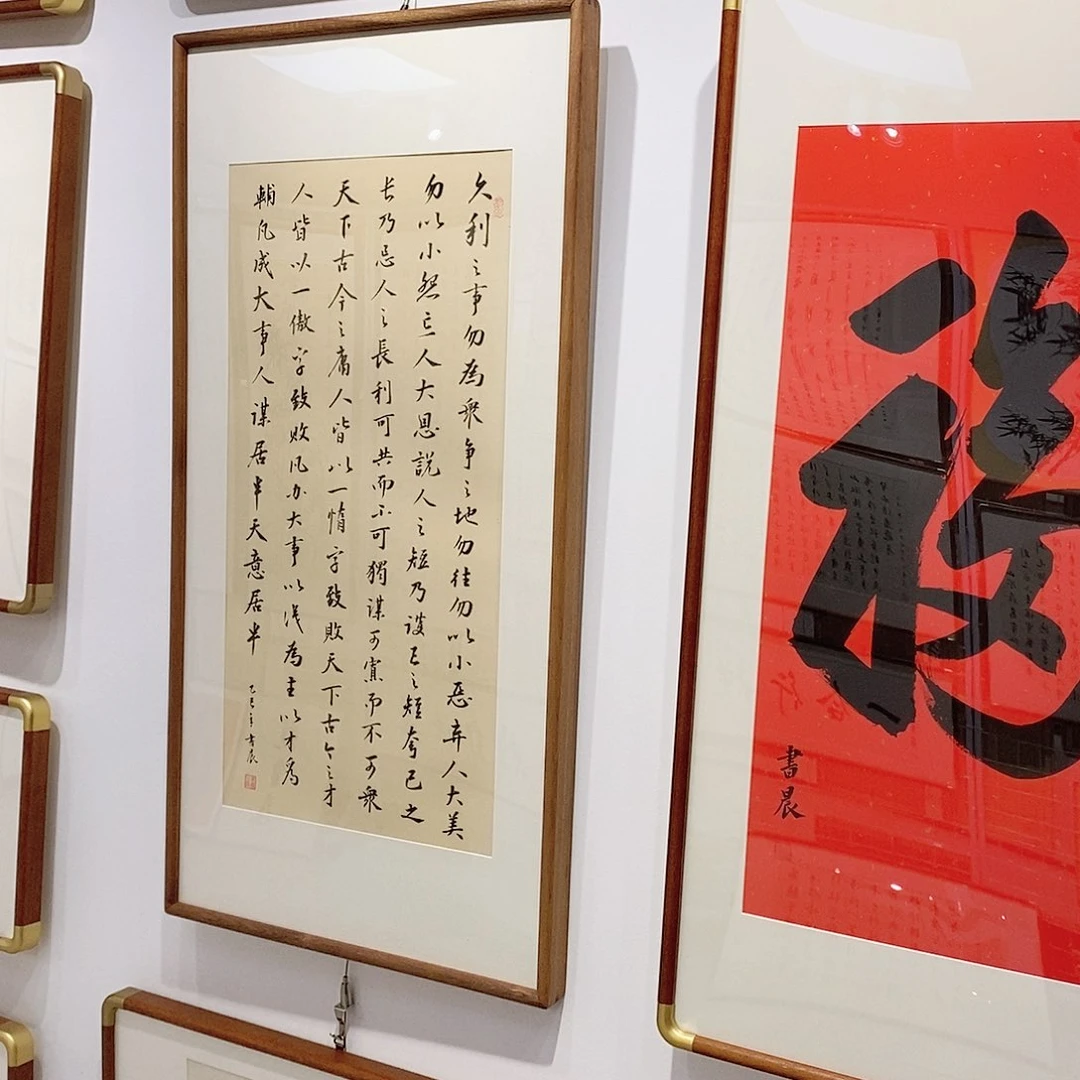 久利之事勿為衆争之地勿往勿以小惡弃人大美
勿以小怨忘人大恩說人之短乃護己之短夸己之
长乃忌人之長利可共而不可獨謀可寡而不可衆
天下古今之庸人皆以一惰字致敗天下古今之才
人皆以一傲字致敗凡办大事以识為主以才為
輔凡成大事人謀居半天意居半
乙巳年書晨
書晨